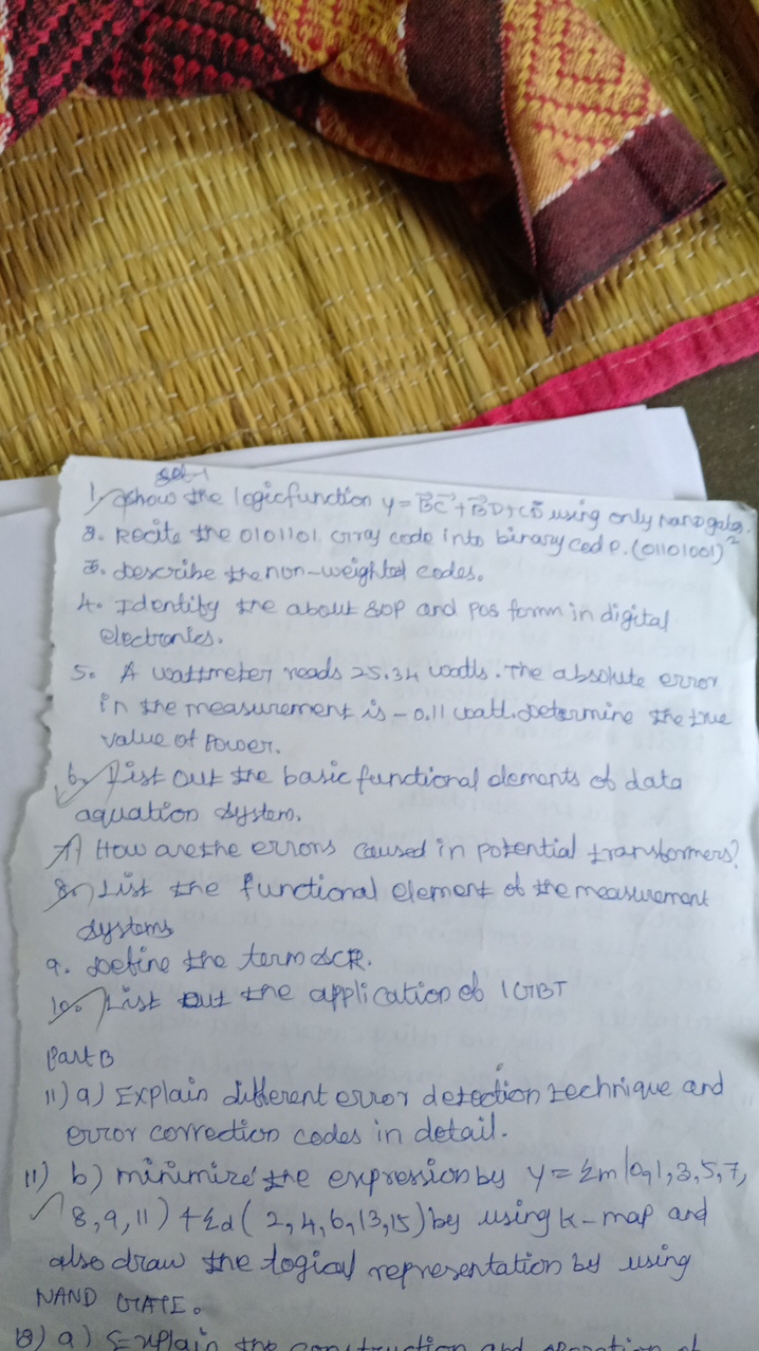 Set-1
1. show the logic function y = B̄C̄ + B̄D + CD̄ using only nand gate.
2. Recite the 0101101 gray code into binary code. (01101001)²
3. describe the non-weighted codes.
4. Identity the about SOP and POS formm in digital
electronics.
5. A wattmeter reads 25.34 watts. The absolute error
in the measurement is -0.11 watt. Determine the true
value of Power.
6. List out the basic functional elements of data
aquation system.
7) How are the errors caused in potential transformers?
8. List the functional element of the measurement
systems
9. Define the term SCR.
10. List out the application of IGBT
Part B
11) a) Explain different error detection technique and
error correction codes in detail.
11) b) minimize the expression by y = Σm(0,1,3,5,7,
8,9,11) + Σd(2,4,6,13,15) by using k-map and
also draw the logical representation by using
NAND GATE.
12) a) Explain the construction and operation of